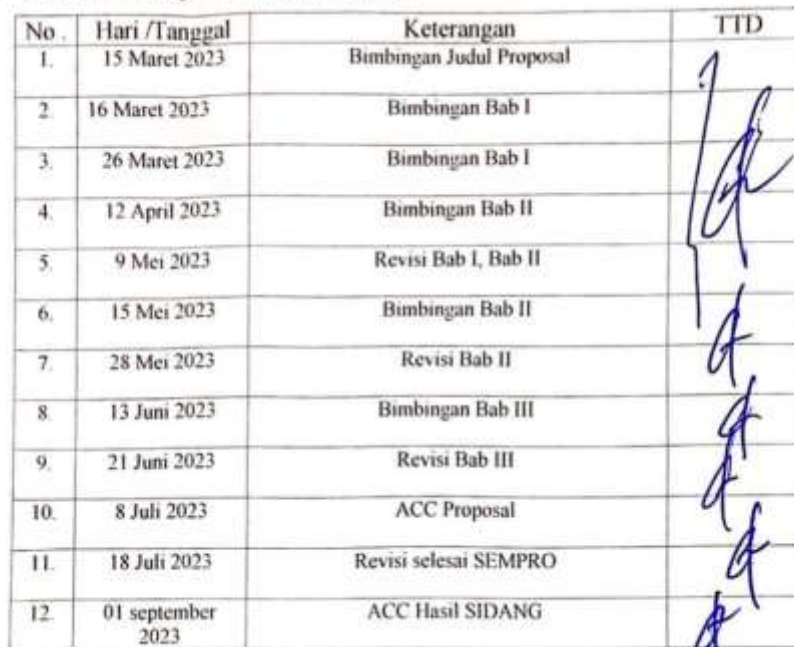 No. Hari /Tanggal Keterangan TTD
1. 15 Maret 2023 Bimbingan Judul Proposal
2. 16 Maret 2023 Bimbingan Bab I
3. 26 Maret 2023 Bimbingan Bab I
4. 12 April 2023 Bimbingan Bab II
5. 9 Mei 2023 Revisi Bab I, Bab II
6. 15 Mei 2023 Bimbingan Bab II
7. 28 Mei 2023 Revisi Bab II
8. 13 Juni 2023 Bimbingan Bab III
9. 21 Juni 2023 Revisi Bab III
10. 8 Juli 2023 ACC Proposal
11. 18 Juli 2023 Revisi selesai SEMPRO
12. 01 september ACC Hasil SIDANG
2023